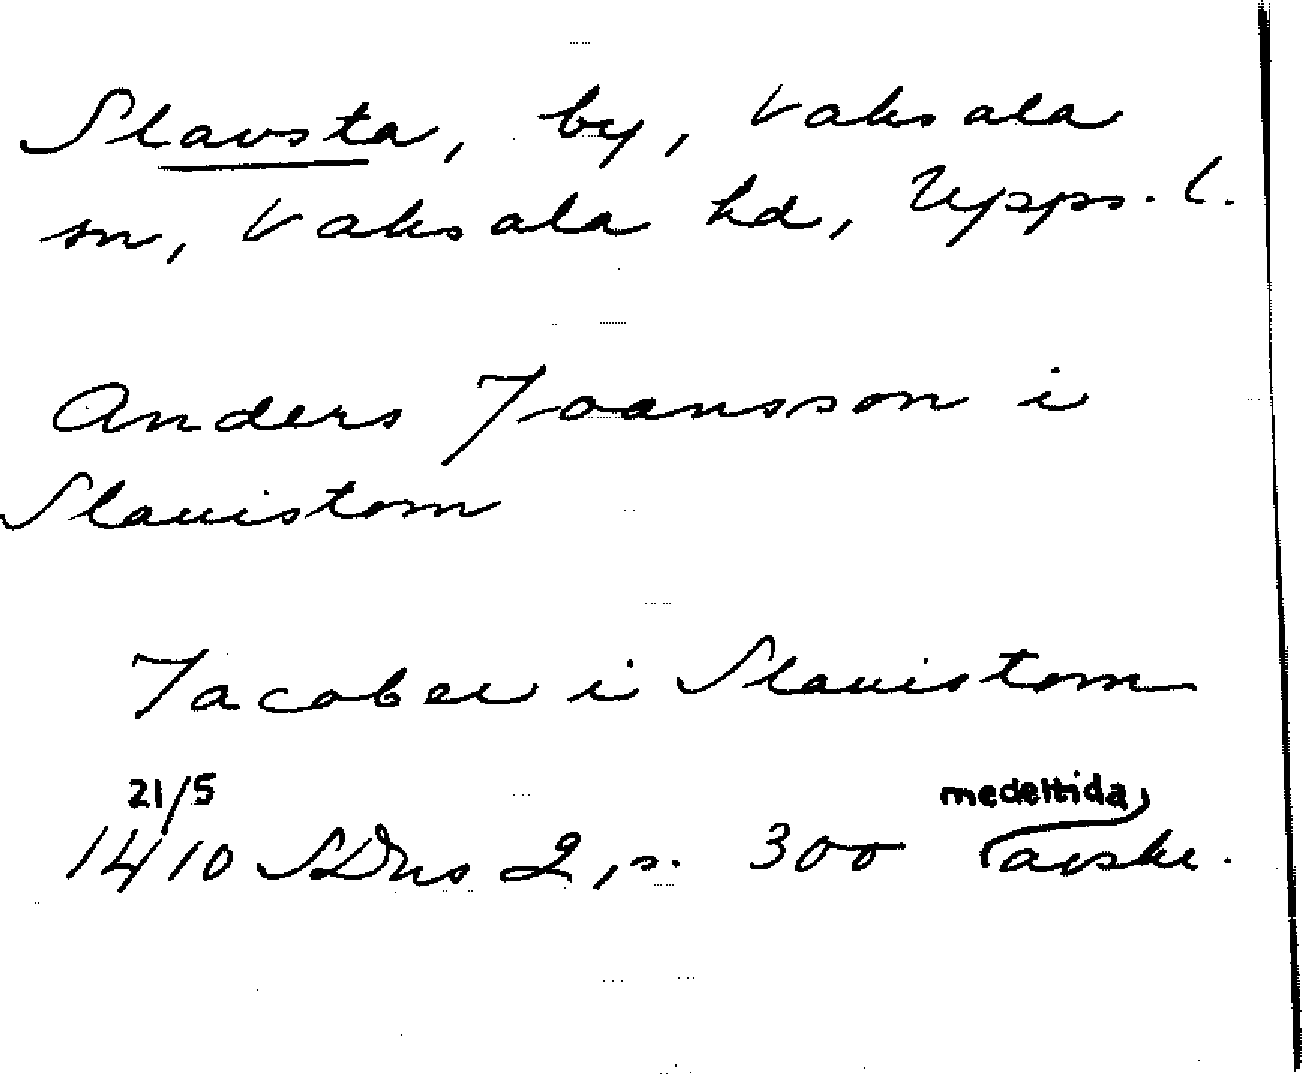 Slavsta, by, Vaksala
sn, Vaksala hd, Upps. l.
Anders Joansson i
Slauistom
Jacober i Slauistom
21/5 medeltida
1410 SDns 2, s. 300 avskr.